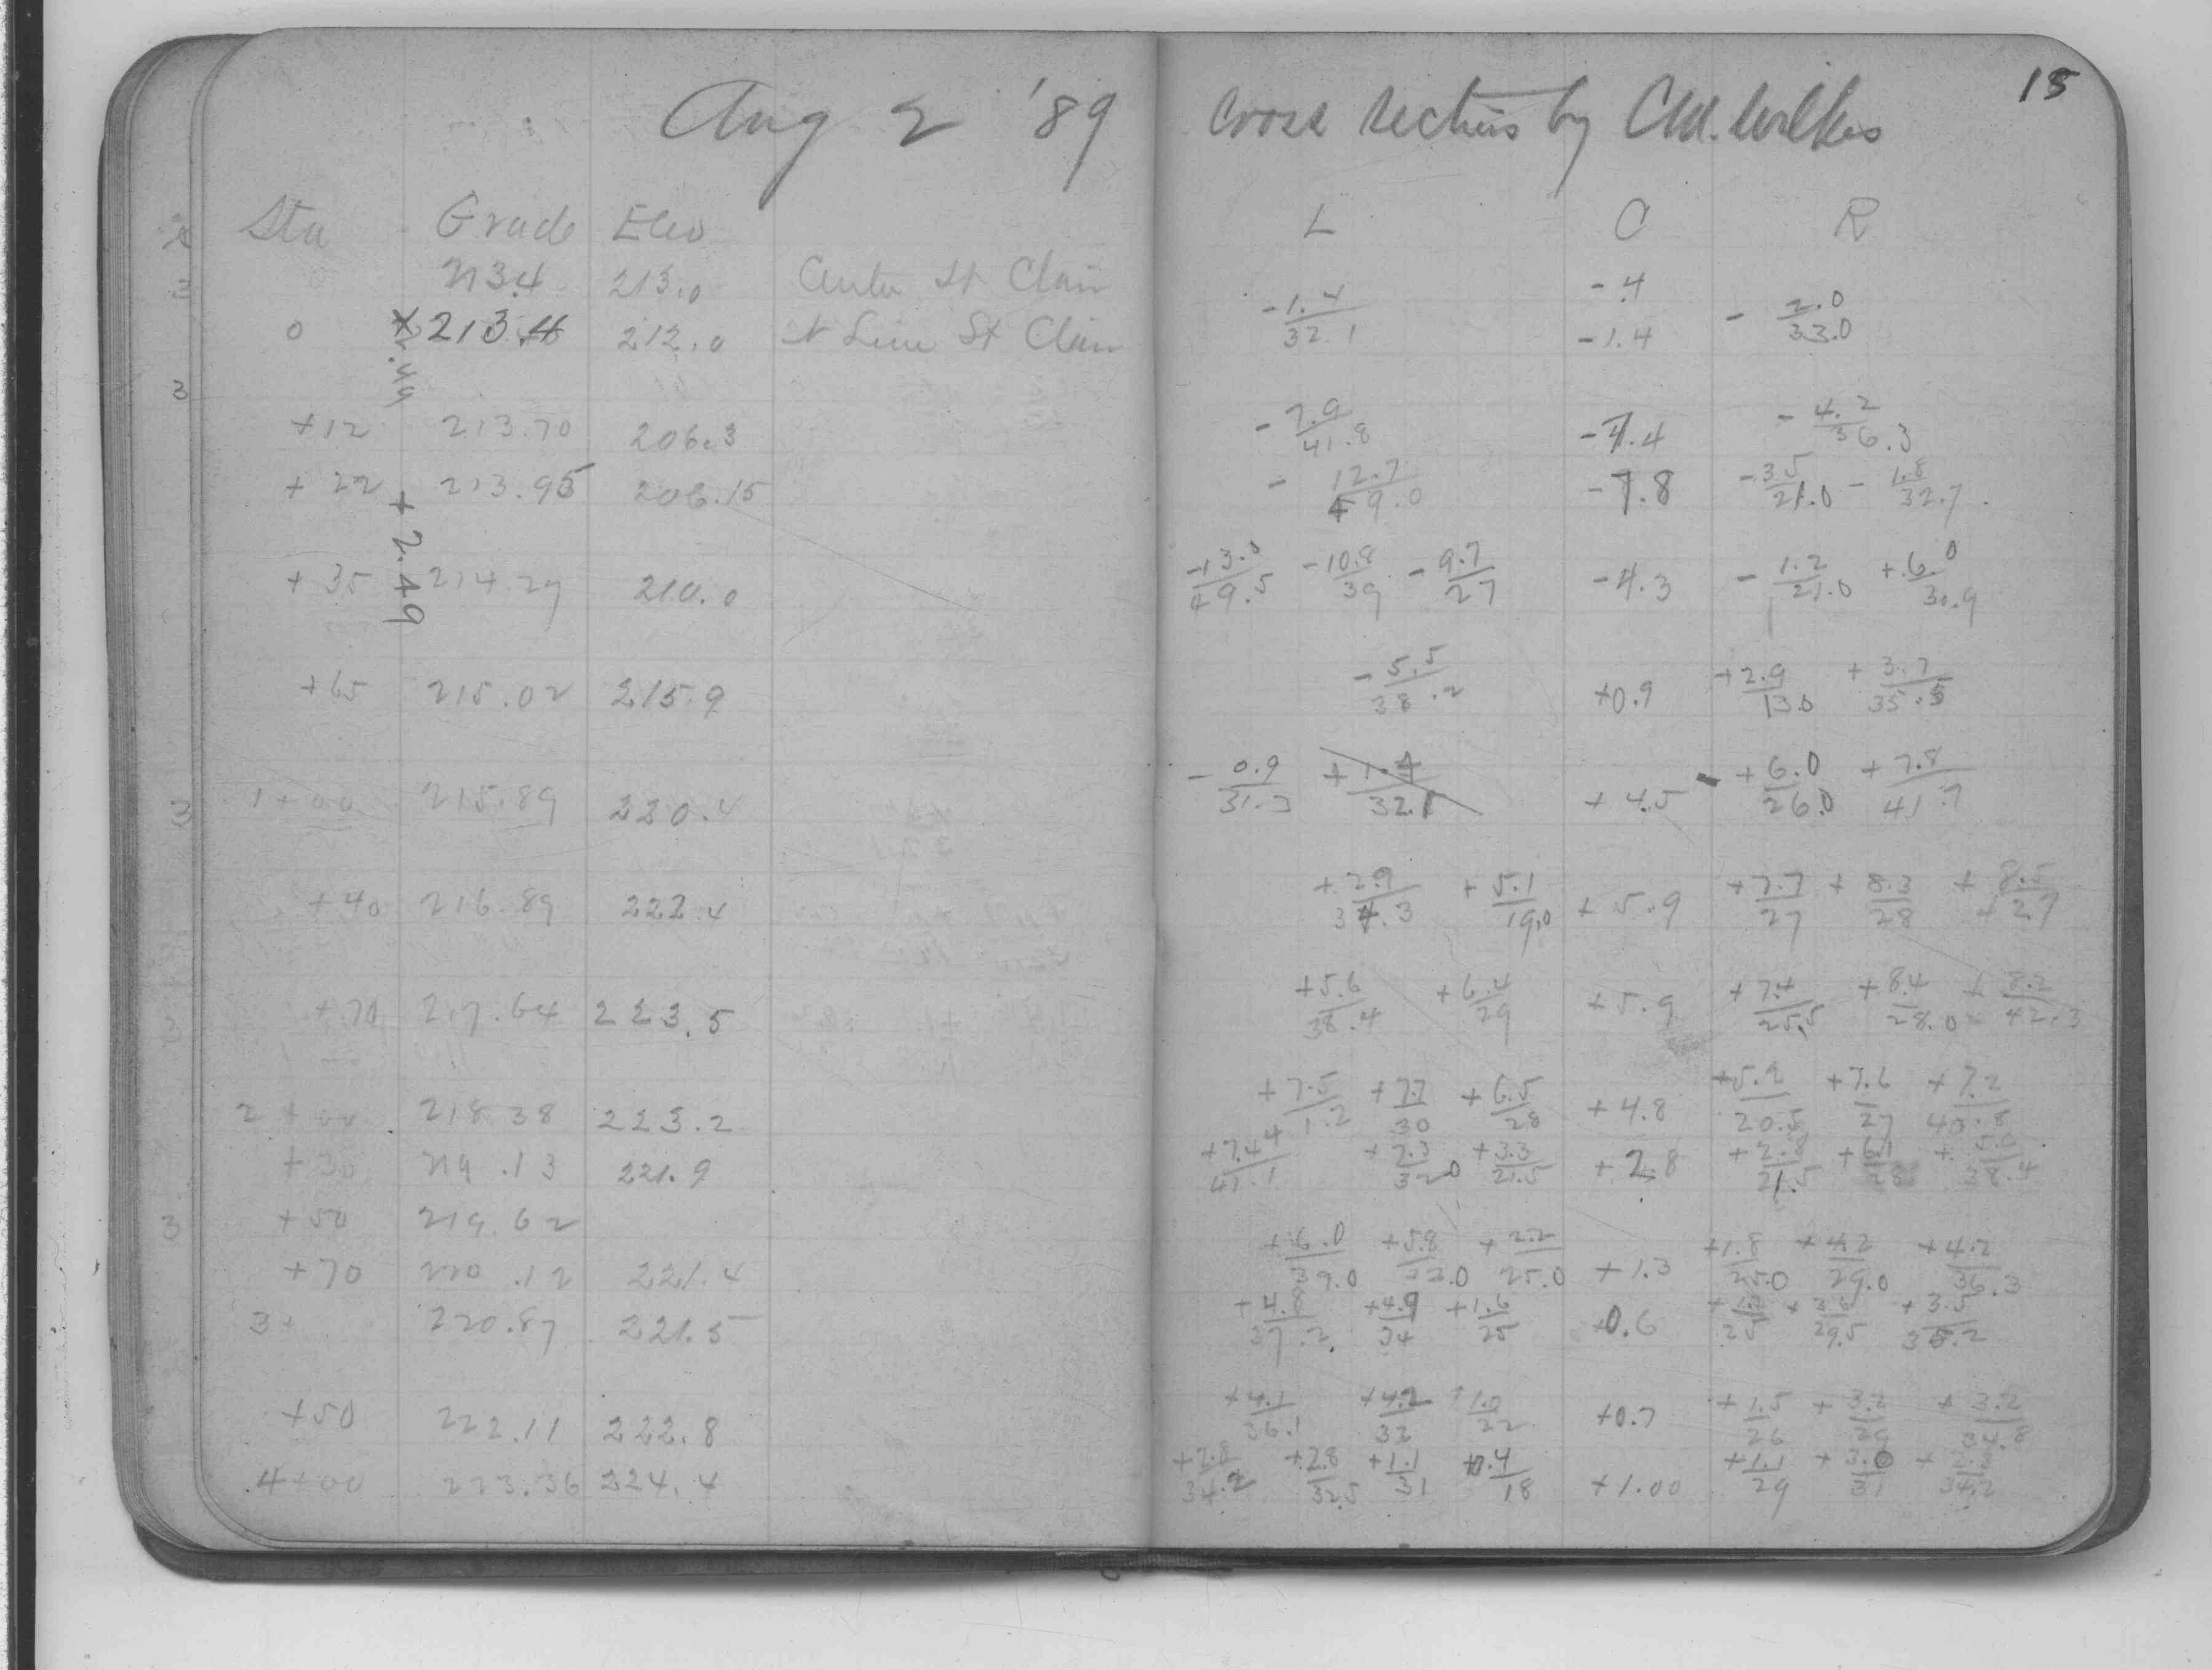 Aug 2 '89 Cross sections by C.M. Wilkes 15
Sta Grade Elev L C R
213.4 213.0 Center St Clair -.4
0 x213.4 212.0 N Line St Clair -1.4/32.1 -1.4 -2.0/33.0
+2.49
+12 213.70 206.3 -7.9/41.8 -7.4 -4.2/36.3
+22 213.95 206.15 -12.7/49.0 -7.8 -3.5/21.0 -1.8/32.7
+2.49
+35 214.27 210.0 -13.0/49.5 -10.8/39 -9.7/27 -4.3 -1.2/21.0 +6.0/30.9
+65 215.02 215.9 -5.5/38.2 +0.9 +2.9/13.0 +3.7/35.5
1+00 215.89 220.4 -0.9/31.3 +1.4/32.1 +4.5 +6.0/26.0 +7.8/41.7
+40 216.89 222.4 +2.9/34.3 +5.1/19.0 +5.9 +7.7/27 +8.3/28 +8.5/42.7
+70 217.64 223.5 +5.6/38.4 +6.4/29 +5.9 +7.4/25.5 +8.4/28.0 +8.2/42.3
2+00 218.38 223.2 +7.5/41.2 +7.7/30 +6.5/28 +4.8 +5.9/20.5 +7.6/27 +7.2/40.8
+30 219.13 221.9 +7.4/41.1 +7.3/32.0 +3.3/21.5 +2.8 +2.8/21.5 +6.1/28 +5.0/38.4
+50 219.62
+70 220.12 221.4 +6.0/39.0 +5.8/33.0 +2.2/25.0 +1.3 +1.8/25.0 +4.2/29.0 +4.2/36.3
3+ 220.87 221.5 +4.8/37.2 +4.9/34 +1.6/25 +0.6 +1.7/25 +3.6/29.5 +3.5/35.2
+50 222.11 222.8 +4.1/36.1 +4.2/33 +1.0/22 +0.7 +1.5/26 +3.2/29 +3.2/34.8
4+00 223.36 224.4 +2.8/34.2 +2.8/32.5 +1.1/31 +0.4/18 +1.00 +1.1/29 +3.0/31